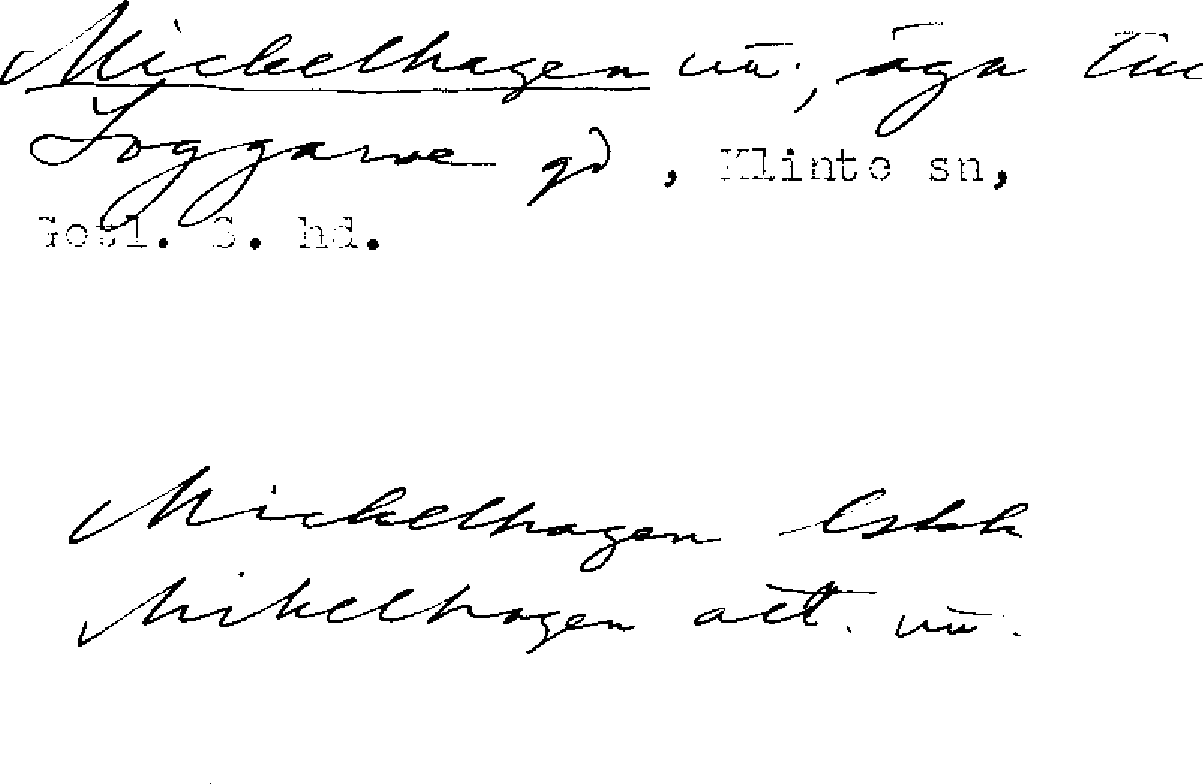 Mickelhagen vū., äga till
Loggarve gd, Klinte sn,
Gotl. S. hd.
Mickelhagen lskh
Mikelhagen alt. vū.